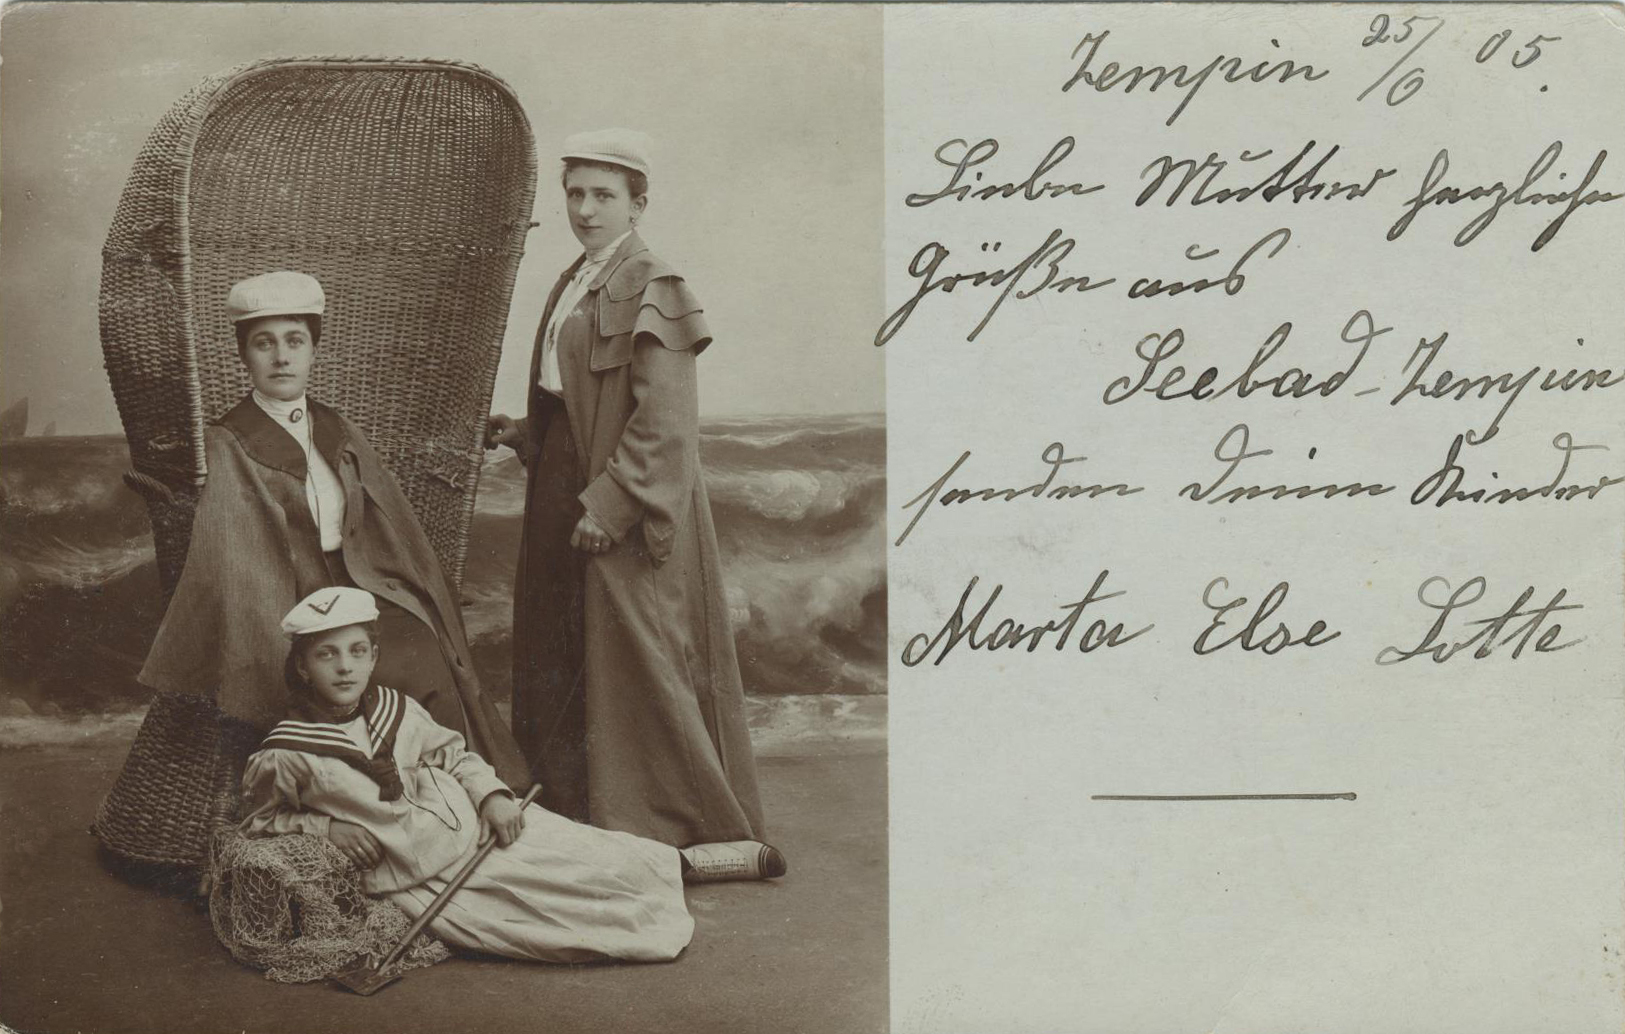 Zempin 25/6 05.
Liebe Mutter herzliche
Grüße aus
Seebad-Zempin
senden Deine Kinder
Marta Else Lotte